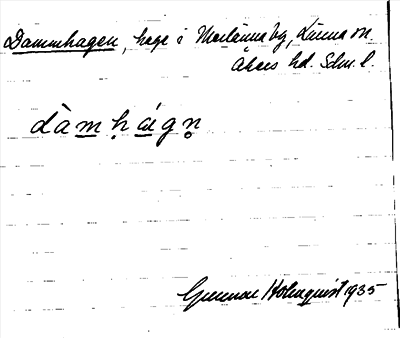 Dammhagen, hage i Mellanna by, Lunna sn.
Åkers hd. Sdm. l.
dàmhágn
Gunnar Holmquist 1935